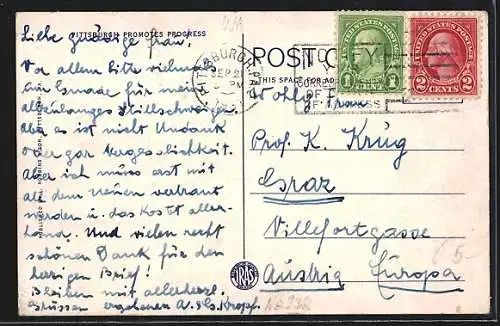 PITTSBURGH PROMOTES PROGRESS
Liebe gnädige Frau,
Vor allem bitte vielmals
um Gnade für mein
allzulanges Stillschweigen.
Aber es ist nicht Undank
oder gar Vergesslichkeit.
Aber ich muss erst mit
all dem neuen vertraut
werden u. das kostet aller-
hand. Und vielen recht
schönen Dank für den
herzigen Brief!
Bleiben mit allerherzl.
Grüssen ergebenen A. Kropf.
PITTSBURGH, PA.
SEP 2
PM
POST
THIS SPACE FOR AD
UNITED STATES POSTAGE
1 CENT 1
UNITED STATES POSTAGE
2 CENTS 2
COURTESY
OF
Wohlg. Frau
Prof. K. Krug
Graz
Villefortgasse
Austria Europa
5-